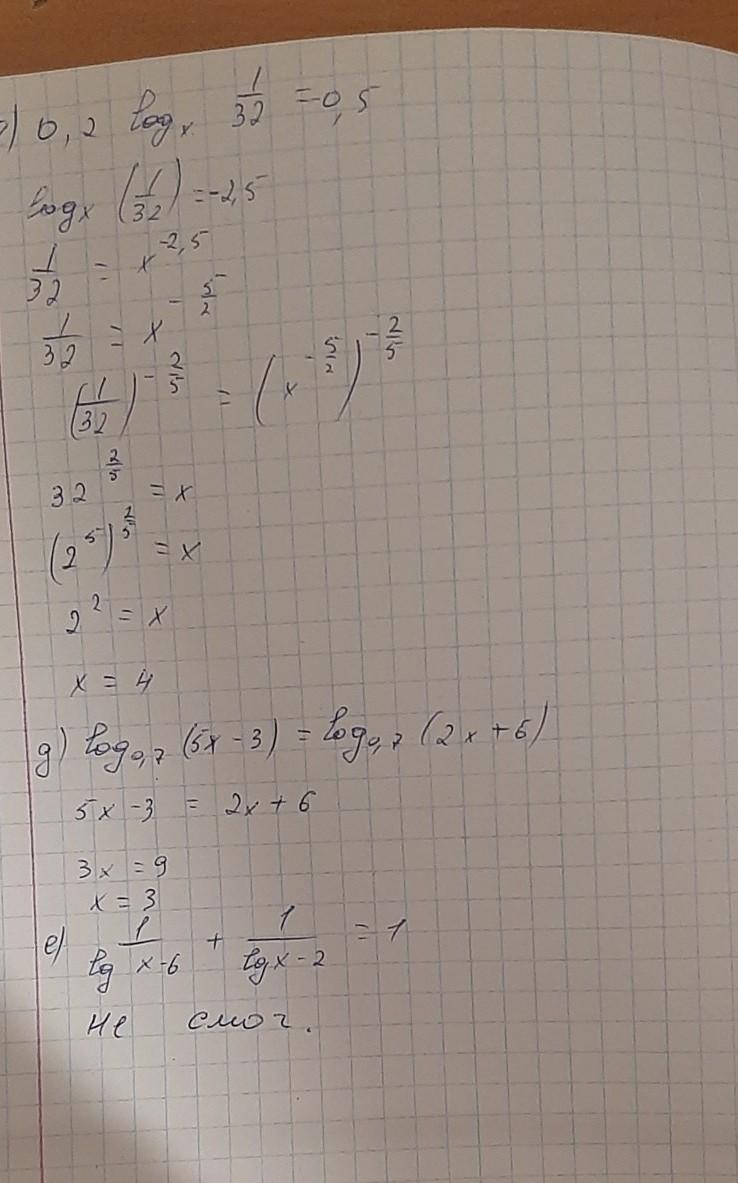 ) 0,2 logₓ 1/32 = -0,5
logₓ (1/32) = -2,5
1/32 = x^-2,5
1/32 = x^-5/2
(1/32)^-2/5 = (x^-5/2)^-2/5
32^2/5 = x
(2^5)^2/5 = x
2^2 = x
x = 4
д) log₀,₇ (5x - 3) = log₀,₇ (2x + 6)
5x - 3 = 2x + 6
3x = 9
x = 3
е) 1/(lg x - 6) + 1/(lg x - 2) = 1
Не смог.